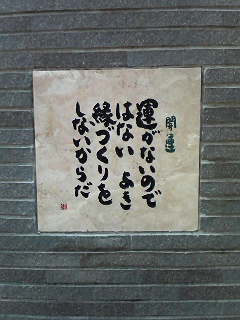 開運
運がないので
はない よき
縁づくりを
しないからだ